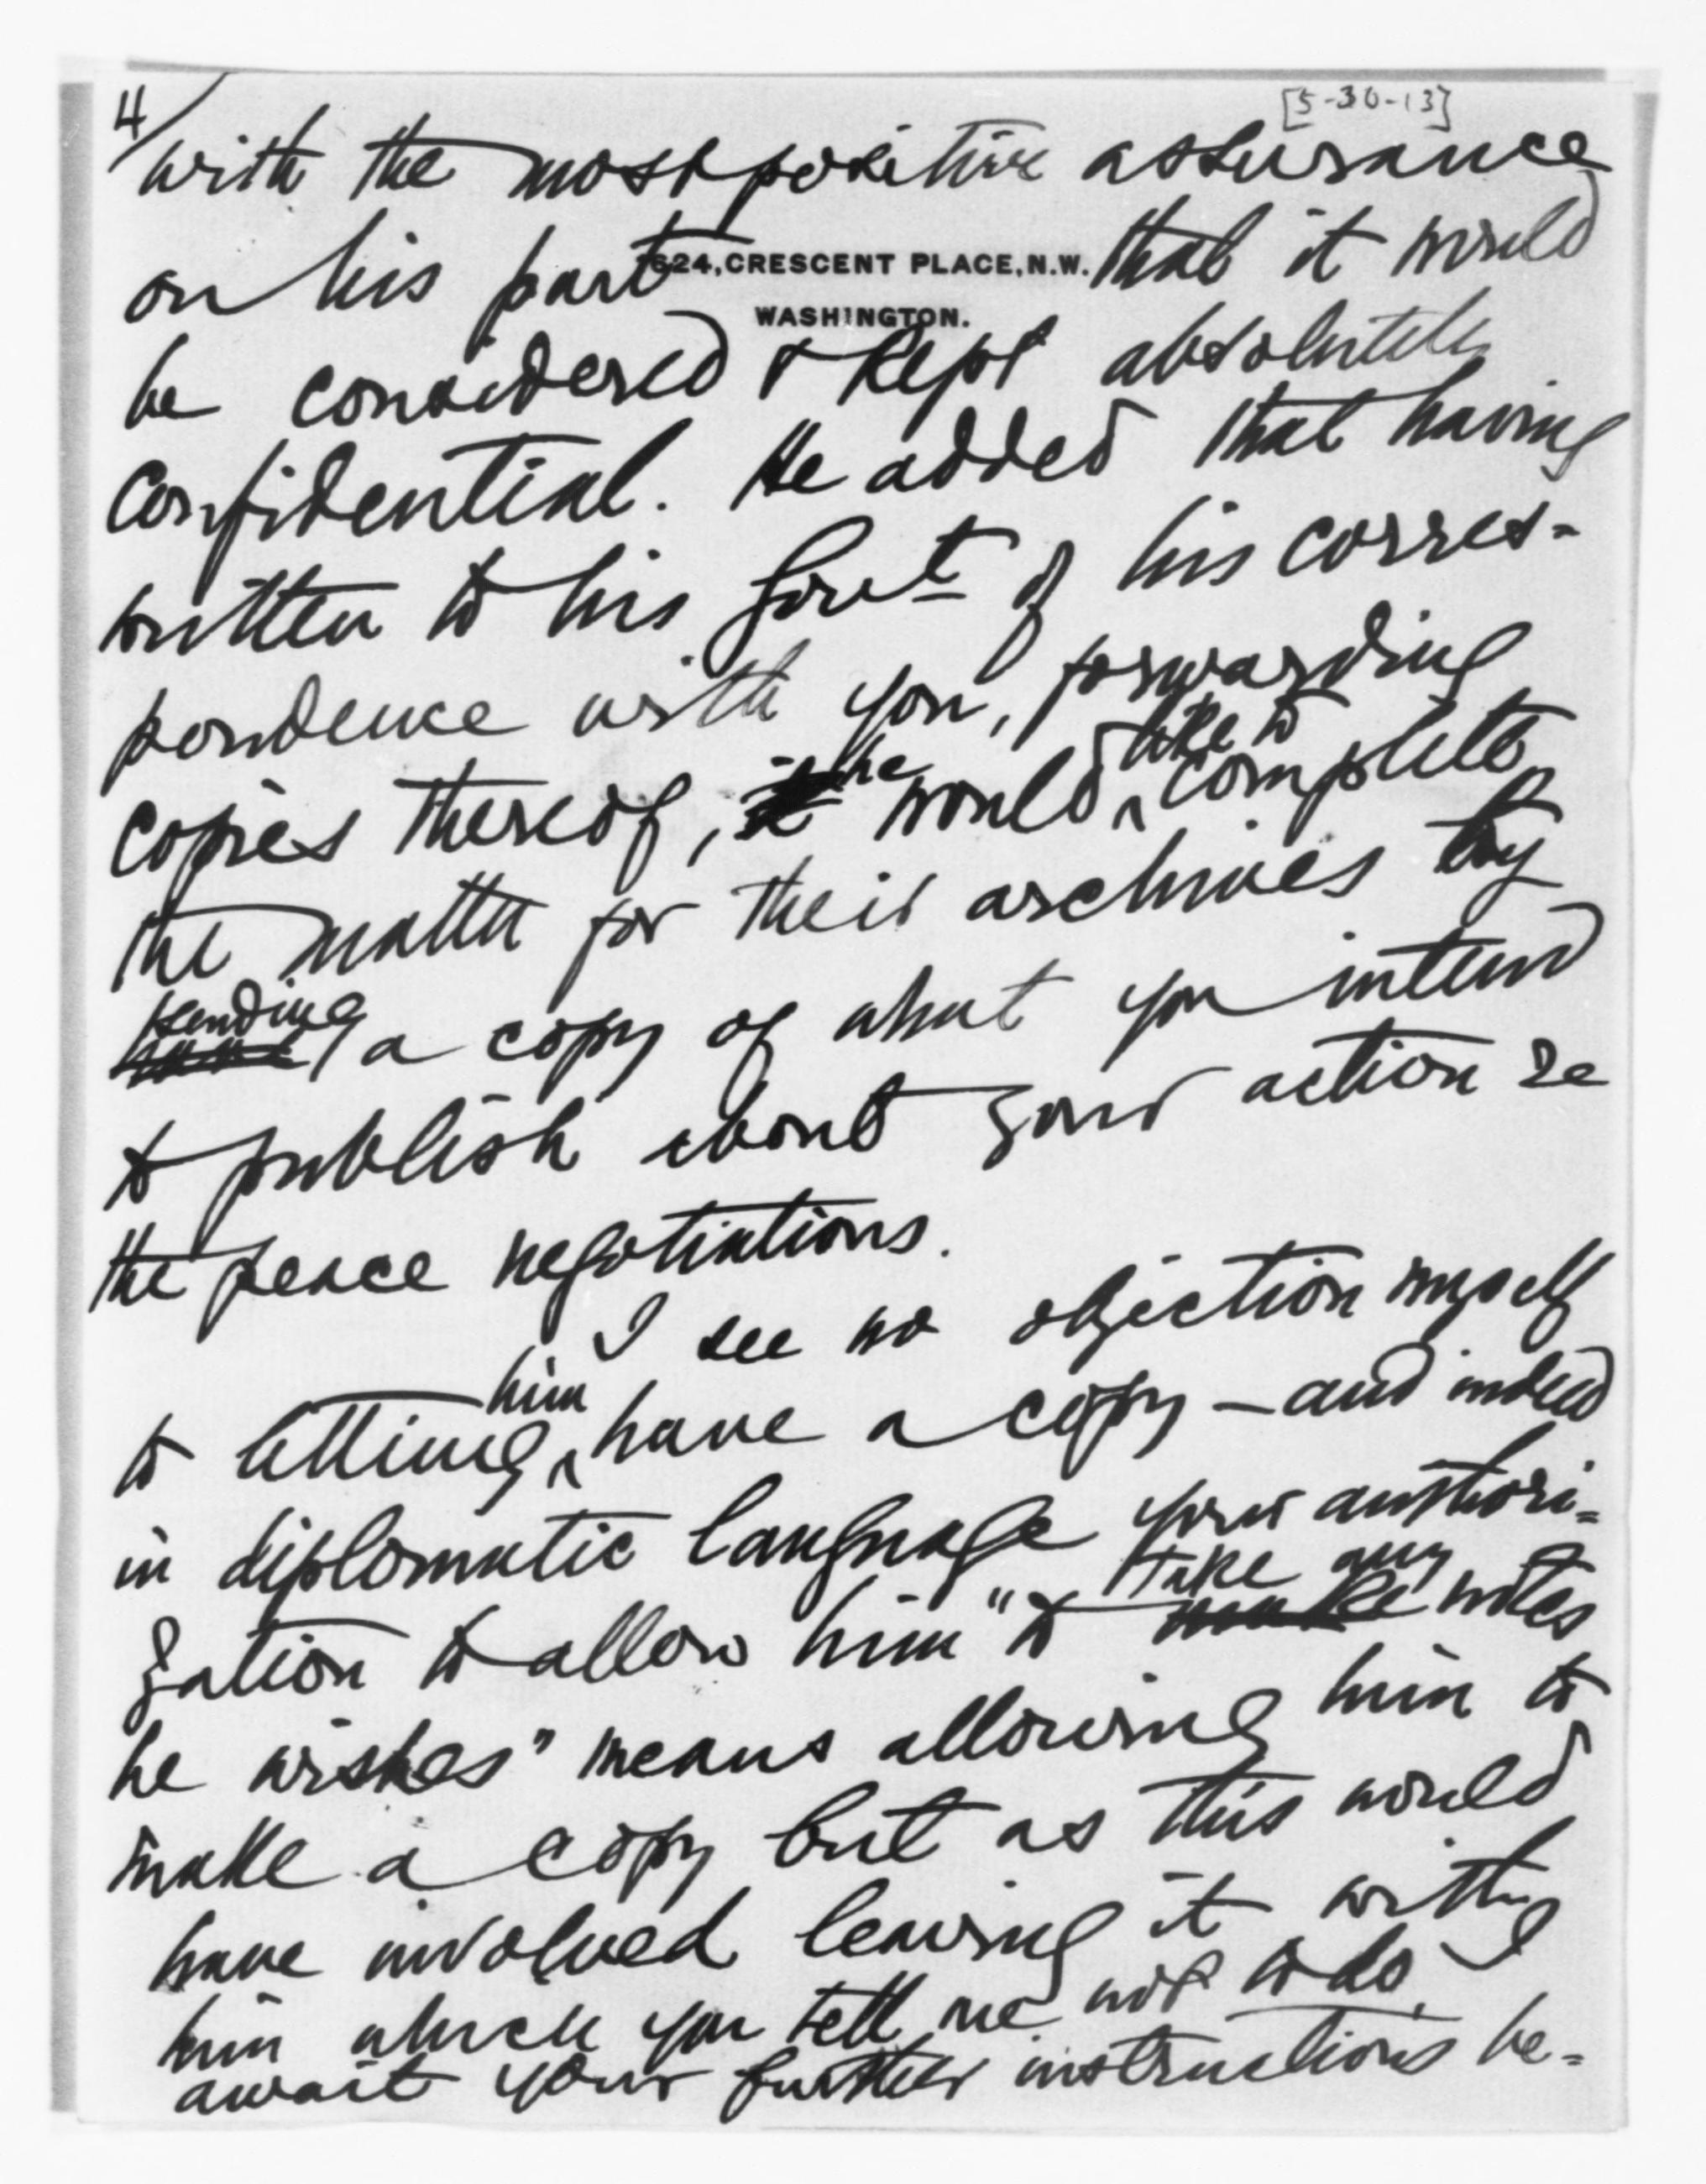 4/
[5-30-13]
with the most positive assurance
on his part that it would
1624, CRESCENT PLACE, N.W.
WASHINGTON.
be considered & kept absolutely
confidential. He added that having
written to his Govt of his corres-
pondence with you, forwarding
copies thereof, he would like to complete
the matter for their archives by
sending a copy of what you intend
to publish about your action re
the peace negotiations.
I see no objection myself
to letting him have a copy – and indeed
in diplomatic language your authori-
zation to allow him "to take any notes
he wishes" means allowing him to
make a copy but as this would
have involved leaving it with
him which you tell me not to do I
await your further instructions be-